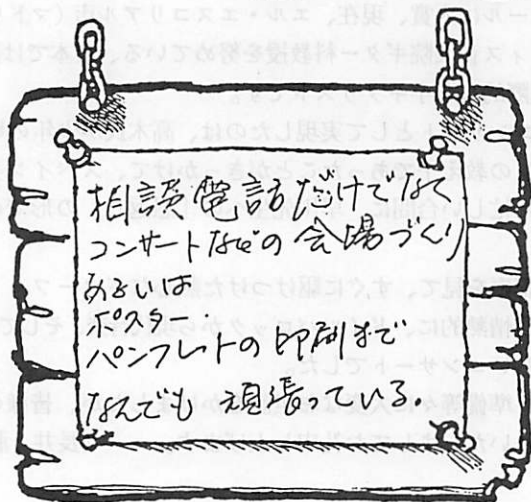 相談電話だけでなく
コンサートなどの会場づくり
あるいは
ポスター・
パンフレットの印刷まで
なんでも頑張っている.